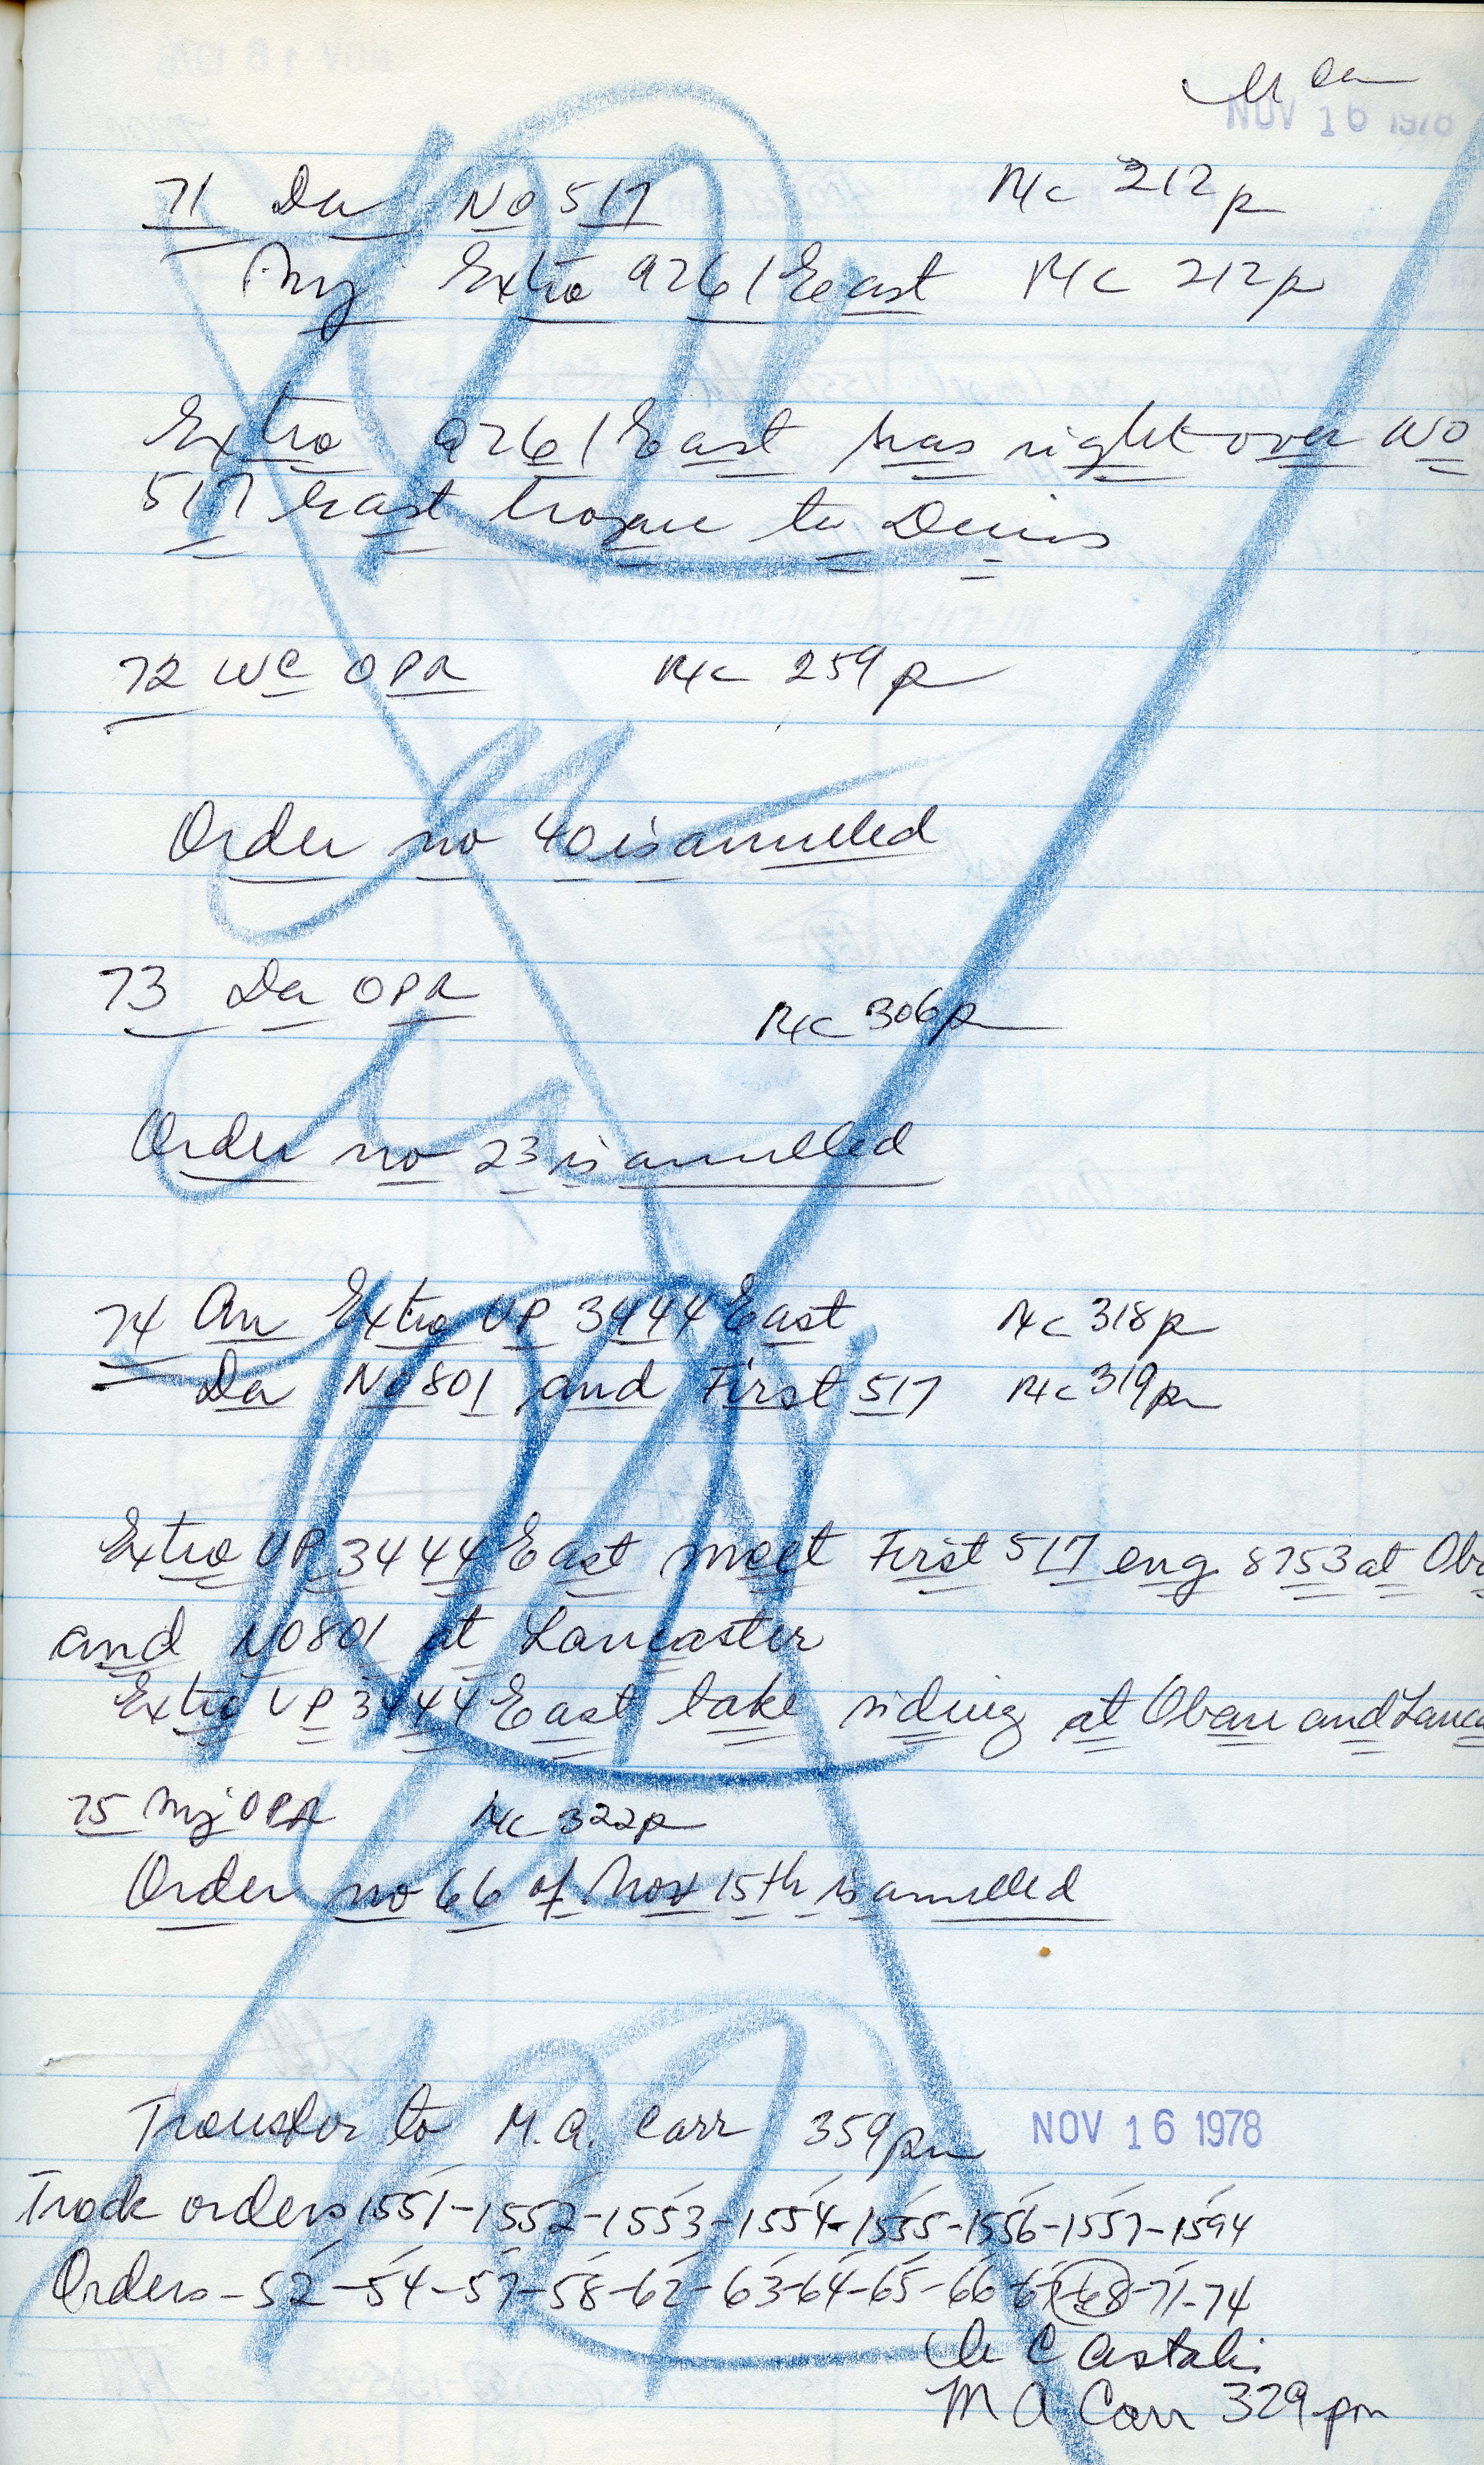 NOV 16 1978
71 Da No 517 MC 212p
My Extra 9261 East MC 212p
Extra 9261 East has right over No
517 East to
72 WC OPR MC 259p
Order no 40 is annulled
73 Da OPR MC 306p
Order no 23 is annulled
74 An Extra UP 3444 East MC 318p
Da No 801 and First 517 MC 319p
Extra UP 3444 East meet First 517 eng 8753 at Oba
and No 801 at Lancaster
Extra UP 3444 East take siding at Oban and Lanca
75 My OPR MC 322p
Order no 66 of Nov 15th is annulled
Transfer to M.A. Carr 359pm NOV 16 1978
Track orders 1551-1552-1553-1554-1555-1556-1557-1594
Orders-52-54-57-58-62-63-64-65-66-67-68-71-74
M A Carr 329pm